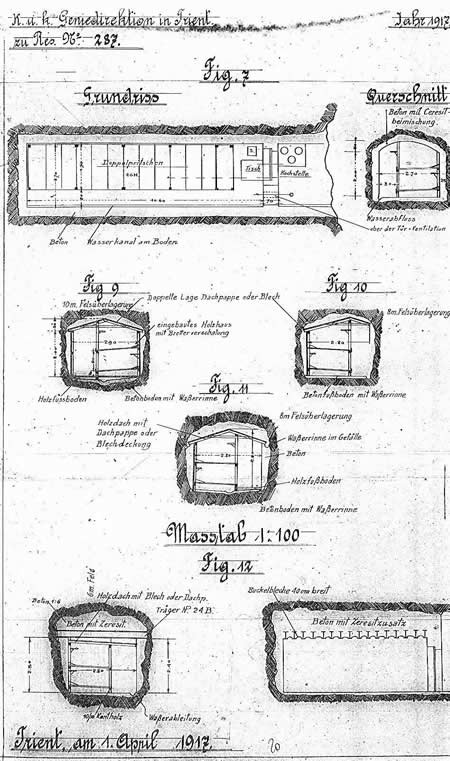 K. u. k. Geniedirektion in Trient.
Jahr 1917
zu Res. Nº 287.
Fig. 7
Grundriss
Querschnitt
Beton mit Ceresit-
beimischung.
Doppelpritschen
Tisch
Kochstelle
Wasserabfluss
über der Tür-Ventilation
Beton
Wasserkanal am Boden
Fig 9
Fig 10
10m. Felsüberlagerung
Doppelte Lage Dachpappe oder Blech
8m. Felsüberlagerung
eingebautes Holzhaus
mit Bretterverschalung
Holzfussboden
Betonboden mit Waßerrinne
Betonfußboden mit Waßerrinne
Fig. 11
8m Felsüberlagerung
Holzdach mit
Dachpappe oder
Blechdeckung
Waßerrinne im Gefälle
Beton
Holzfußboden
Betonboden mit Waßerrinne
Masstab 1:100
Fig. 12
6m. Fels
Holzdach mit Blech oder Dachp.
Träger Nº 24 B.
Beton 1:6
Beton mit Zeresit.
Buckelbleche 40cm breit
Beton mit Zeresitzusatz
Waßerableitung
Trient, am 1. April 1917.
20